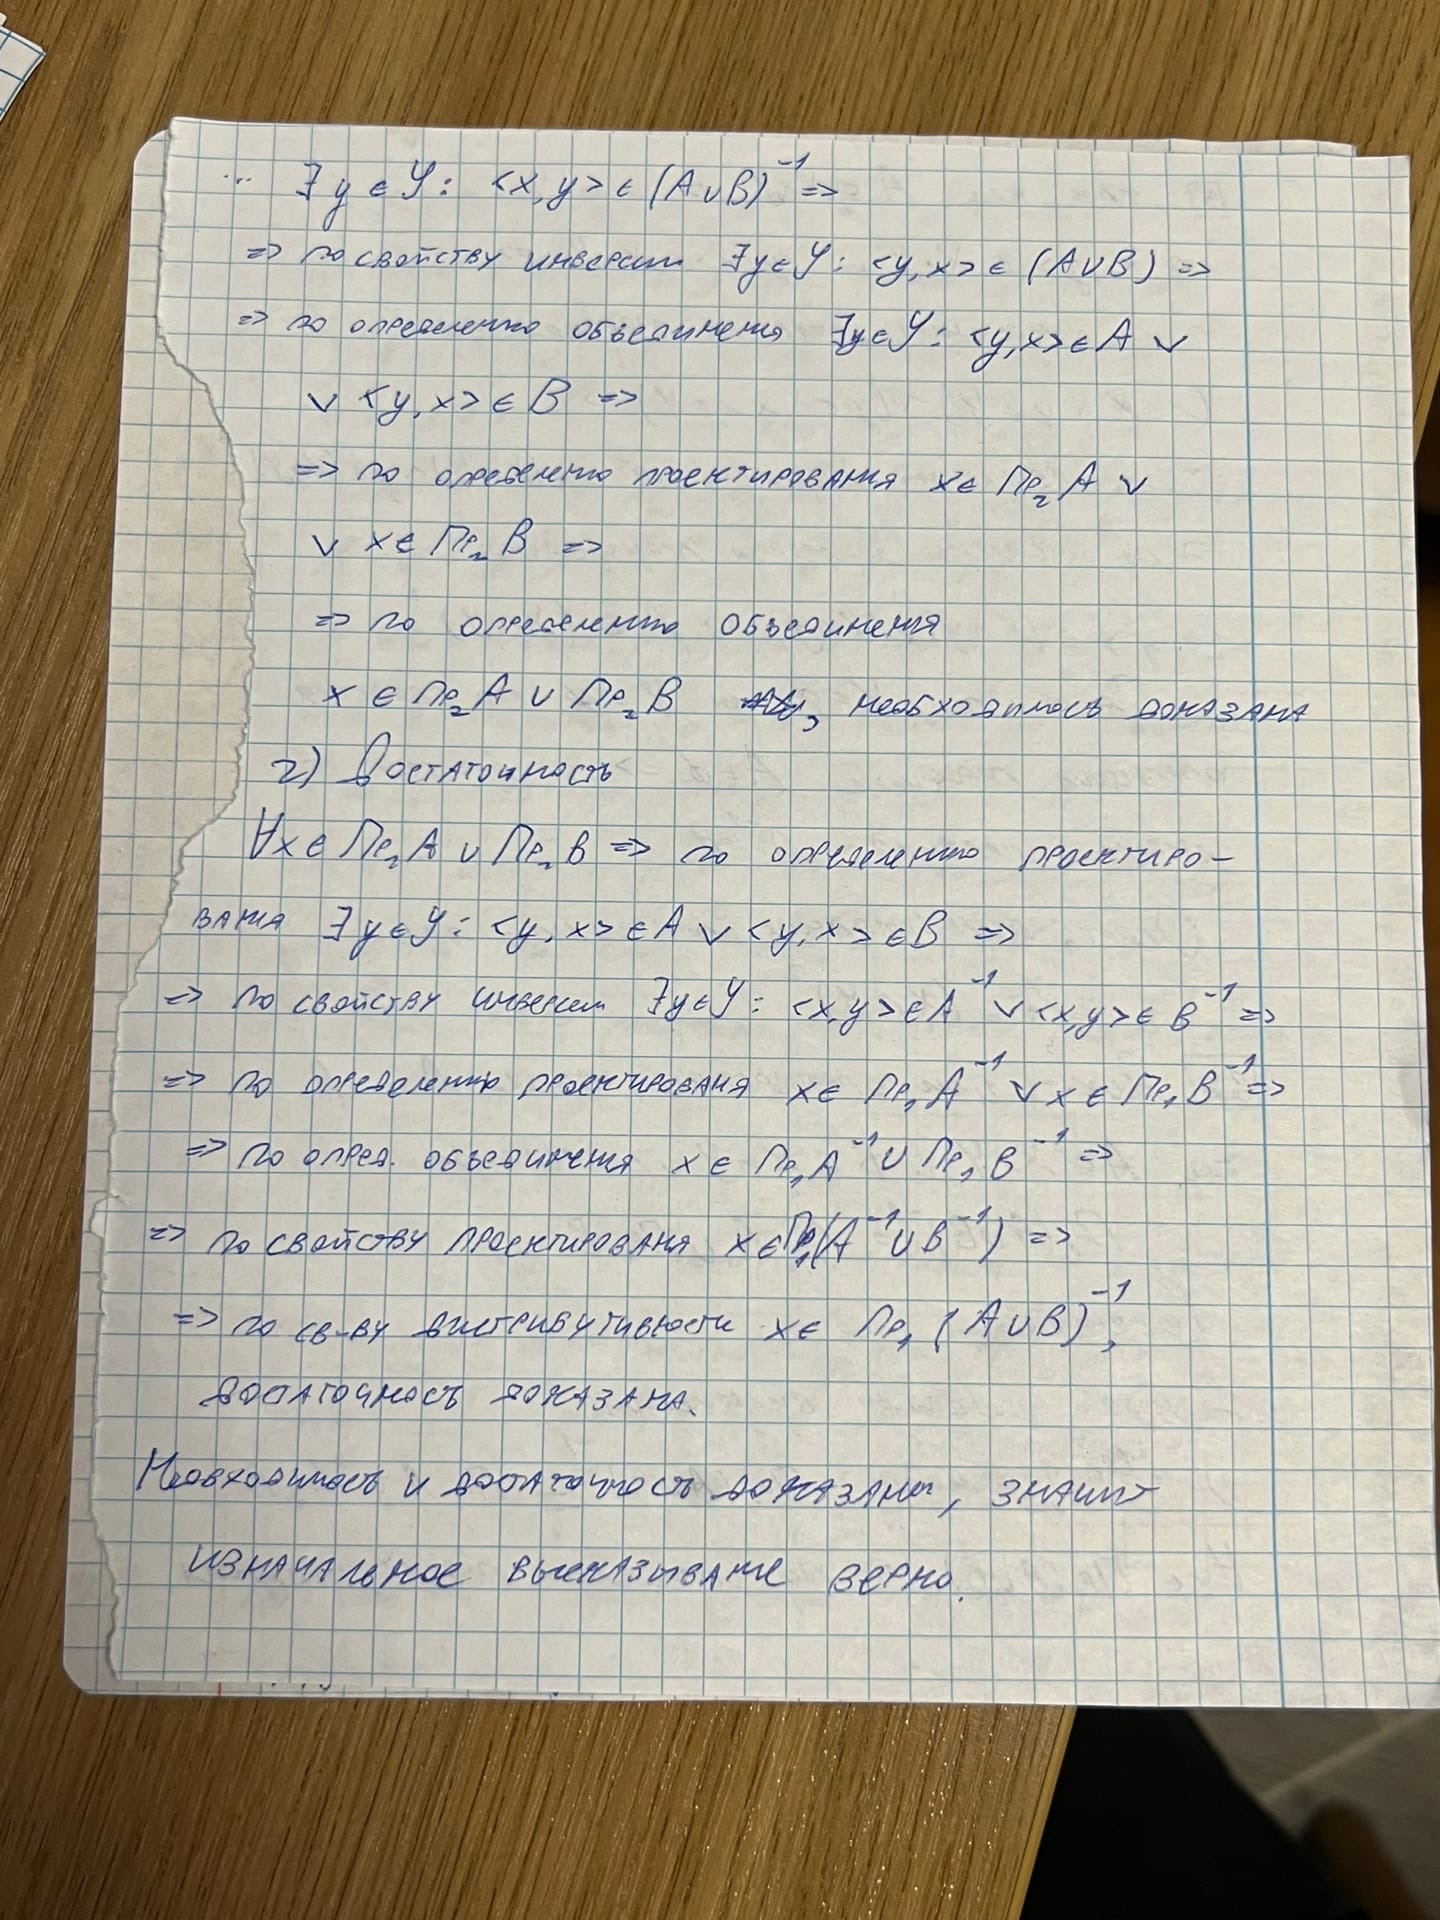 ... ∃y∈Y: <x,y> ∈ (A∪B)⁻¹ =>
=> по свойству инверсии ∃y∈Y: <y,x> ∈ (A∪B) =>
=> по определению объединения ∃y∈Y: <y,x>∈A ∨
∨ <y,x>∈B =>
=> по определению проектирования x∈Пр₂A ∨
∨ x∈Пр₂B =>
=> по определению объединения
x ∈ Пр₂A ∪ Пр₂B , необходимость доказана
2) Достаточность
∀x∈Пр₂A ∪ Пр₂B => по определению проектиро-
вания ∃y∈Y: <y,x>∈A ∨ <y,x>∈B =>
=> по свойству инверсии ∃y∈Y: <x,y>∈A⁻¹ ∨ <x,y>∈B⁻¹ =>
=> по определению проектирования x∈Пр₁A⁻¹ ∨ x∈Пр₁B⁻¹ =>
=> по опред. объединения x∈Пр₁A⁻¹ ∪ Пр₁B⁻¹ =>
=> по свойству проектирования x∈Пр₁(A⁻¹∪B⁻¹) =>
=> по св-ву дистрибутивности x∈ Пр₁(A∪B)⁻¹,
достаточность доказана.
Необходимость и достаточность доказаны, значит
изначальное высказывание верно.